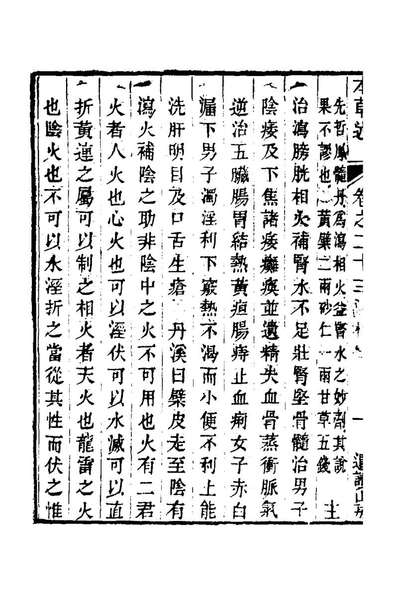 本草述
卷之二十三
先哲鳳髓丹為瀉相火益腎水之妙劑其說
果不謬也　黃檗二兩砂仁一兩甘草五錢
主
治瀉膀胱相火補腎水不足壯腎堅骨髓治男子
陰痿及下焦諸痿癱瘓並遺精失血骨蒸衝脈氣
逆治五臟腸胃結熱黃疸腸痔止血痢女子赤白
漏下男子濁淫利下竅熱不渴而小便不利上能
洗肝明目及口舌生瘡　丹溪曰檗皮走至陰有
瀉火補陰之助非陰中之火不可用也火有二君
火者人火也心火也可以溼伏可以水滅可以直
折黃連之屬可以制之相火者天火也龍雷之火
也陰火也不可以水溼折之當從其性而伏之惟